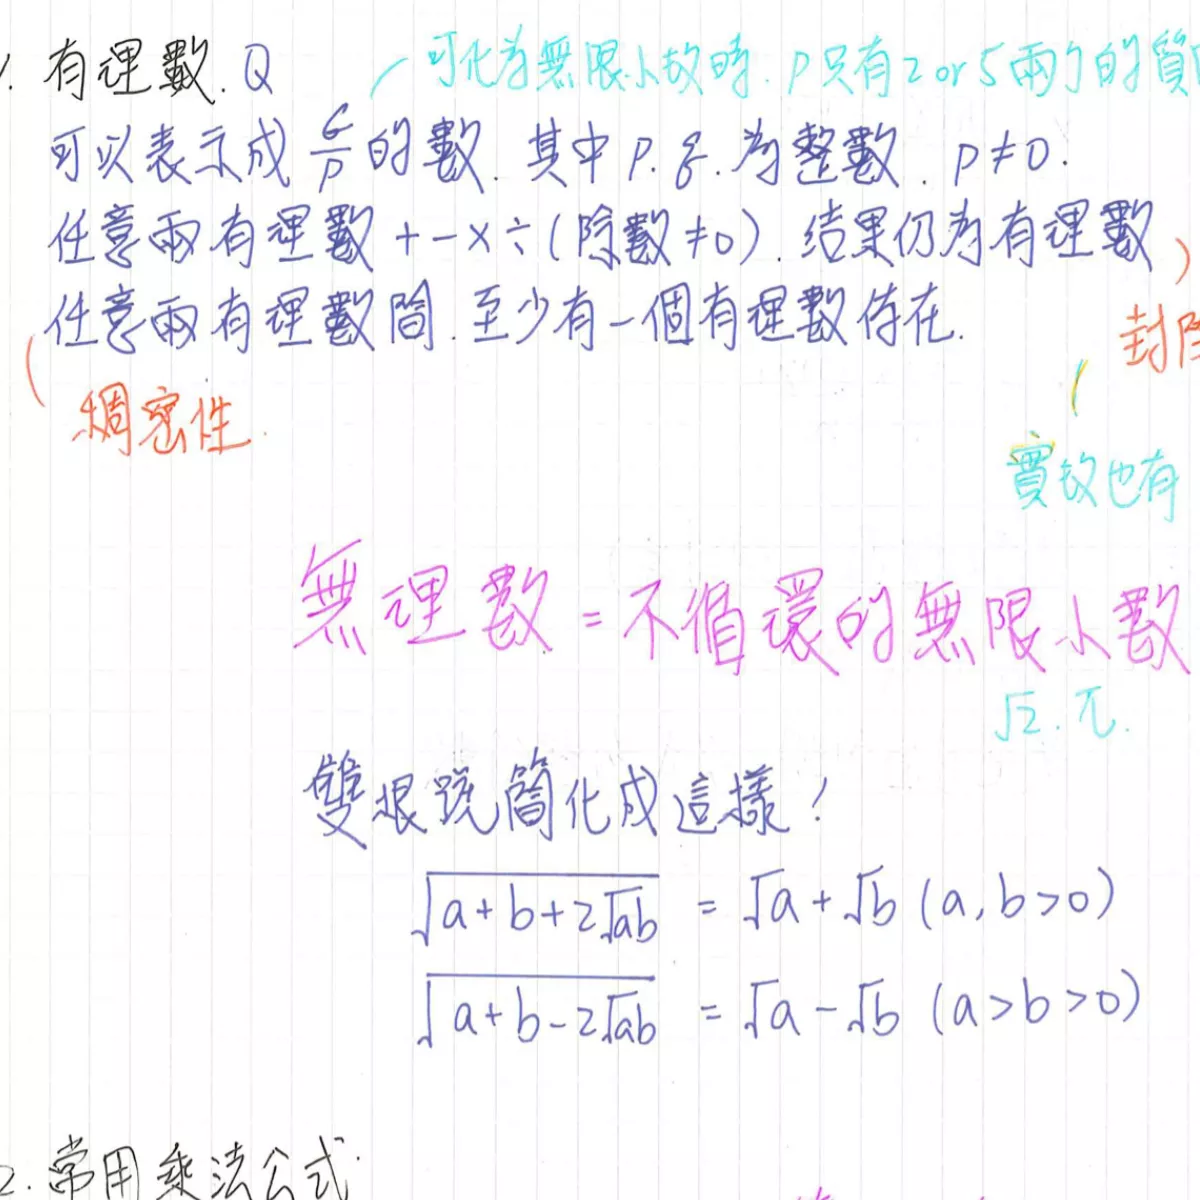 1. 有理數. Q
可化為無限小故時. P只有2 or 5兩個的質
可以表示成 q/p 的數. 其中 p. q. 為整數. p≠0.
任意兩有理數 + - × ÷ (除數≠0). 結果仍為有理數
任意兩有理數間. 至少有一個有理數存在.
封閉
稠密性.
實故也有
無理數 = 不循環的無限小數
√2. π.
雙根號簡化成這樣!
√(a+b+2√ab) = √a + √b (a, b > 0)
√(a+b-2√ab) = √a - √b (a > b > 0)
2. 常用乘法公式.